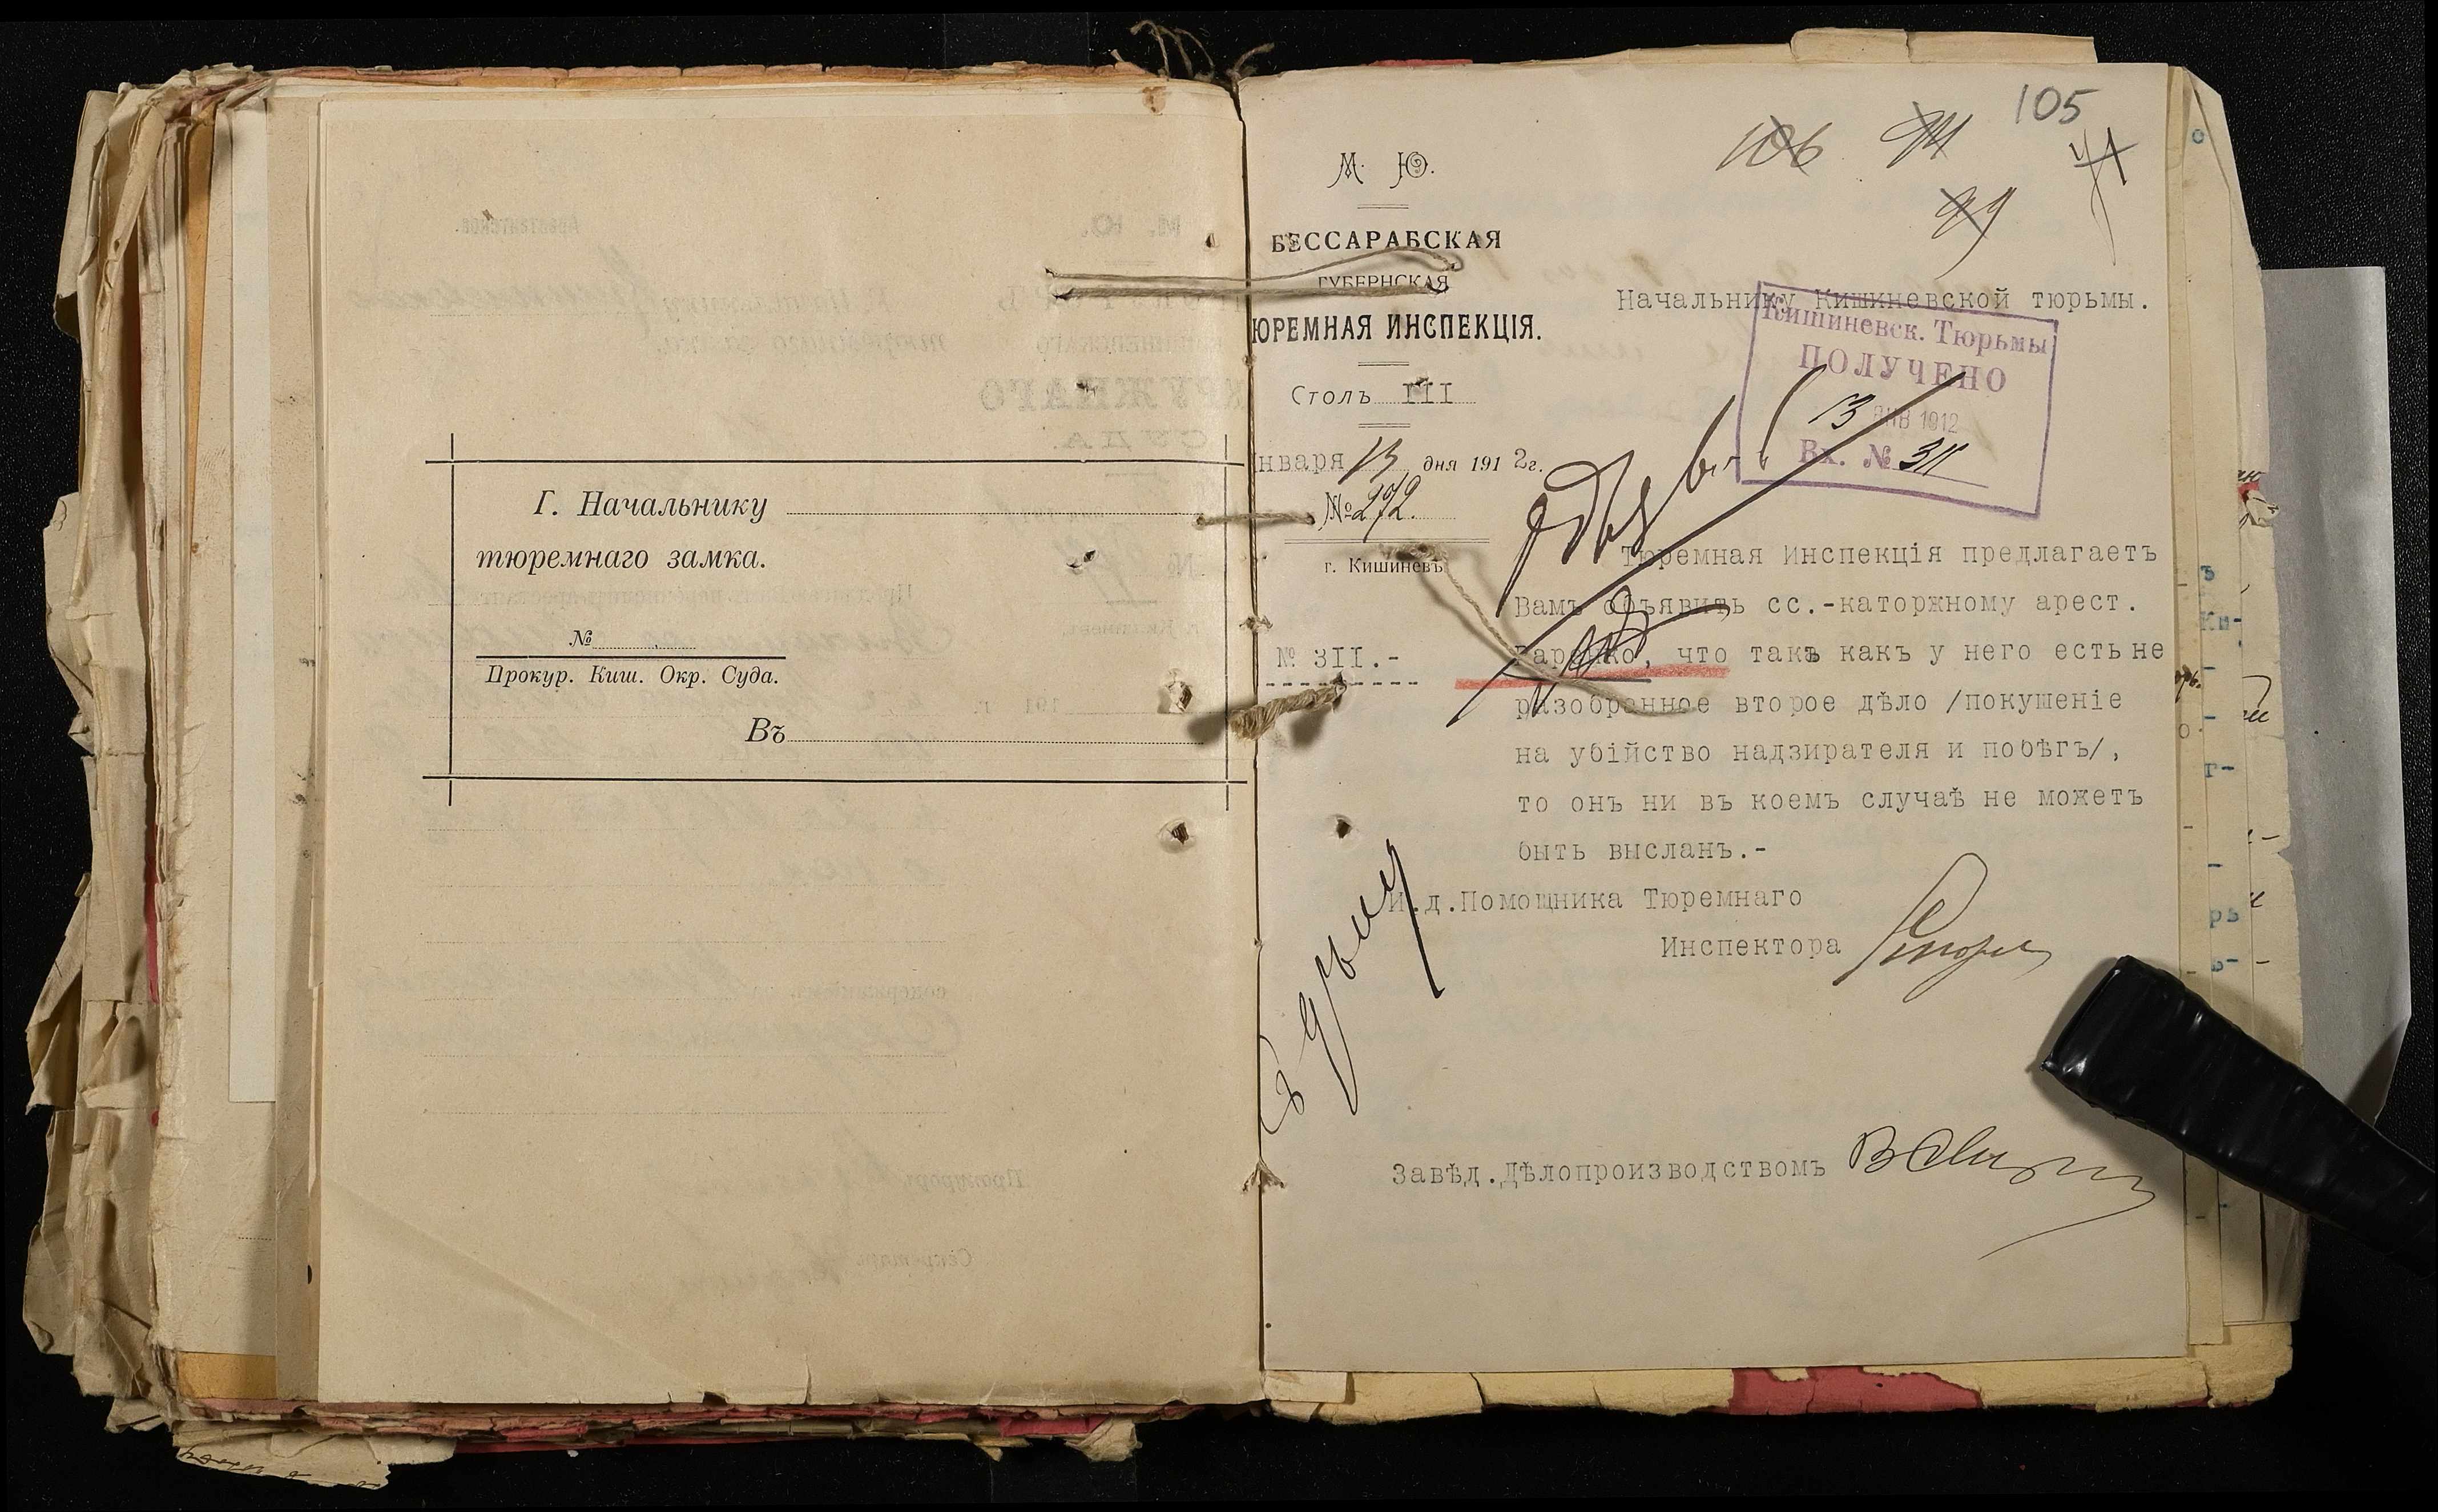 Г. Начальнику
тюремнаго замка.
№
Прокур. Киш. Окр. Суда.
Въ
105
106
99
М. Ю.
БЕССАРАБСКАЯ
ГУБЕРНСКАЯ
ЮРЕМНАЯ ИНСПЕКЦІЯ.
Столъ III
нваря 13 дня 1912г.
№ 272.
г. Кишиневъ
№ 3II.-
Начальнику Кишиневской тюрьмы.
Кишиневск. Тюрьмы
ПОЛУЧЕНО
13 ЯНВ 1912
Вх. № 311
Тюремная Инспекція предлагаетъ
Вамъ объявить сс.-каторжному арест.
что такъ какъ у него есть не
разобранное второе дѣло /покушеніе
на убійство надзирателя и побѣгъ/,
то онъ ни въ коемъ случаѣ не можетъ
быть высланъ.-
И.д.Помощника Тюремнаго
Инспектора
Завѣд.Дѣлопроизводствомъ